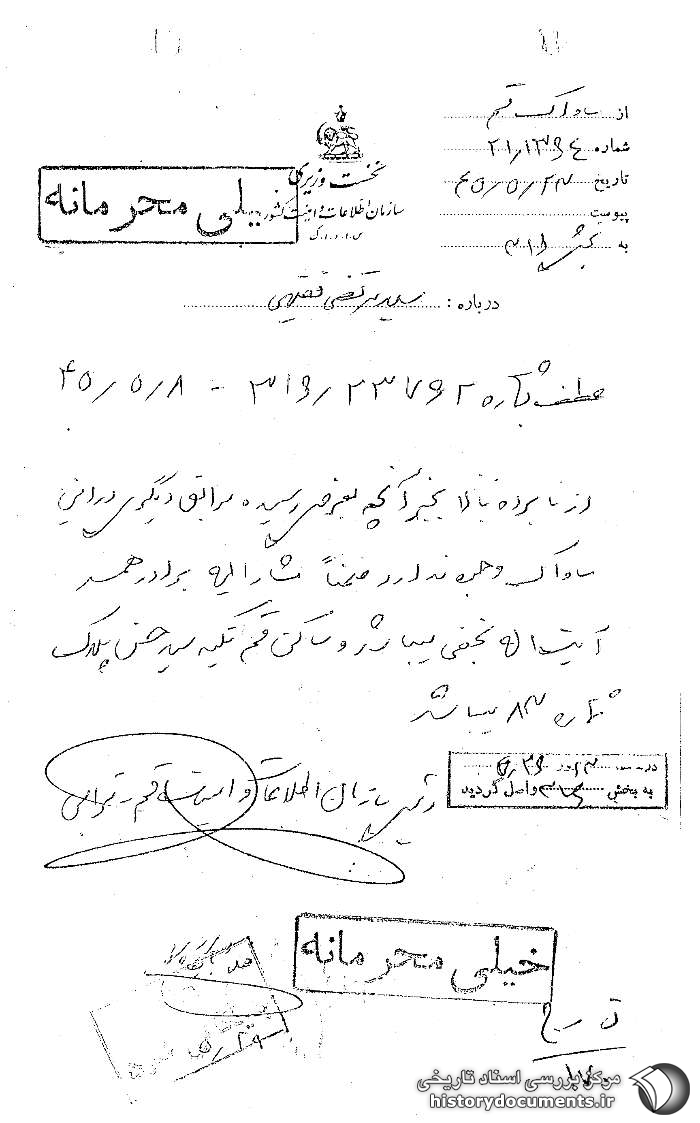 از ساواک قم
شماره ۲۱/۱۳۶۴
تاریخ ۴۵/۵/۲۳
پیوست
به بخش ۳۱۶
نخست وزیری
سازمان اطلاعات و امنیت کشور
س.ا.و.ا.ک
خیلی محرمانه
درباره : سید مرتضی فقیهی
عطف بشماره ۳۱۶/۲۳۷۶۲ - ۴۵/۵/۸
از نامبرده بالا بغیر آنچه بعرض رسیده سوابق دیگری در این
ساواک وجود ندارد ضمناً مشارالیه برادر همسر
آیت اله نجفی میباشد و ساکن قم تکیه سید حسن پلاک
شماره ۸۳ میباشد
رئیس سازمان اطلاعات و امنیت قم -
به بخش ۳۱۶ واصل گردید
خیلی محرمانه
مرکز بررسی اسناد تاریخی
historydocuments.ir